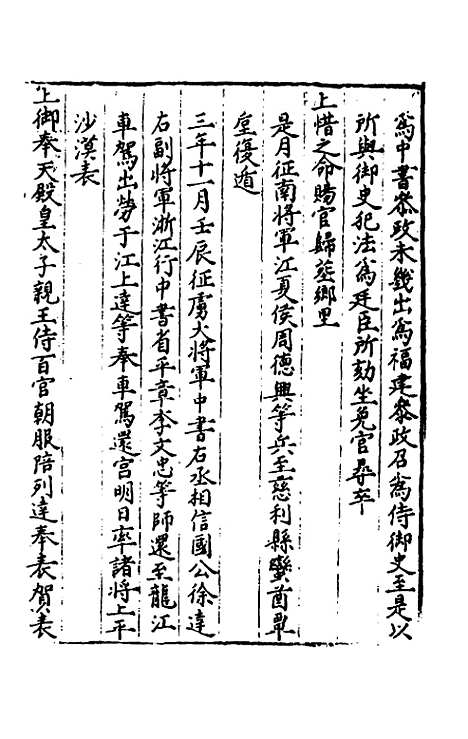 為中書參政未幾出為福建參政召為侍御史至是以
所與御史犯法為廷臣所劾坐免官尋卒
上惜之命賜官歸葬鄉里
是月征南將軍江夏侯周德興等兵至慈利縣蠻酋覃
垕復遁
三年十一月壬辰征虜大將軍中書右丞相信國公徐達
右副將軍浙江行中書省平章李文忠等師還至龍江
車駕出勞于江上達等奉車駕還宮明日率諸將上平
沙漠表
上御奉天殿皇太子親王侍百官朝服陪列達奉表賀表